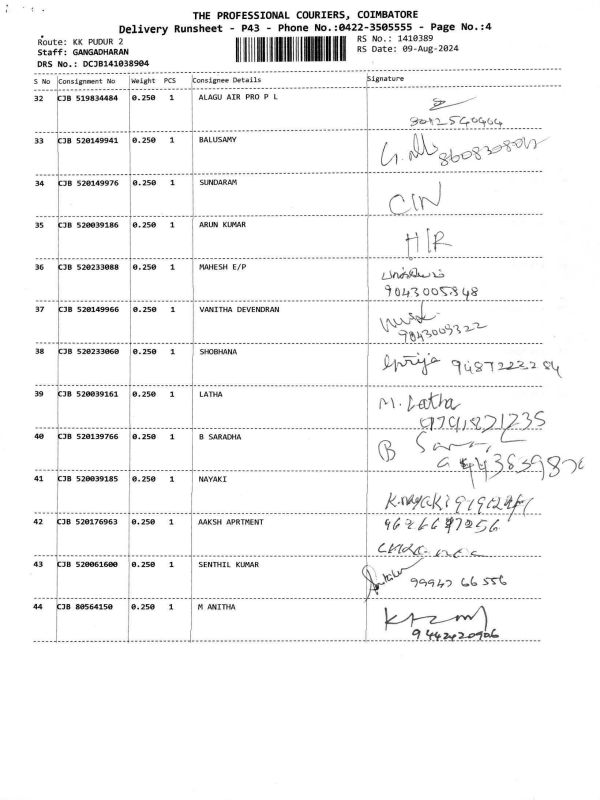 THE PROFESSIONAL COURIERS, COIMBATORE
Delivery Runsheet - P43 - Phone No.:0422-3505555 - Page No.:4
Route: KK PUDUR 2 RS No.: 1410389
Staff: GANGADHARAN RS Date: 09-Aug-2024
DRS No.: DCJB141038904
S No Consignment No Weight PCS Consignee Details Signature
32 CJB 519834484 0.250 1 ALAGU AIR PRO P L
33 CJB 520149941 0.250 1 BALUSAMY
34 CJB 520149976 0.250 1 SUNDARAM CIN
35 CJB 520039186 0.250 1 ARUN KUMAR H/R
36 CJB 520233088 0.250 1 MAHESH E/P
9043005848
37 CJB 520149966 0.250 1 VANITHA DEVENDRAN
9043009322
38 CJB 520233060 0.250 1 SHOBHANA
39 CJB 520039161 0.250 1 LATHA M. Latha
9791871235
40 CJB 520139766 0.250 1 B SARADHA B
41 CJB 520039185 0.250 1 NAYAKI K.nayaki
42 CJB 520176963 0.250 1 AAKSH APRTMENT
43 CJB 520061600 0.250 1 SENTHIL KUMAR 99947 66556
44 CJB 80564150 0.250 1 M ANITHA
9442420906